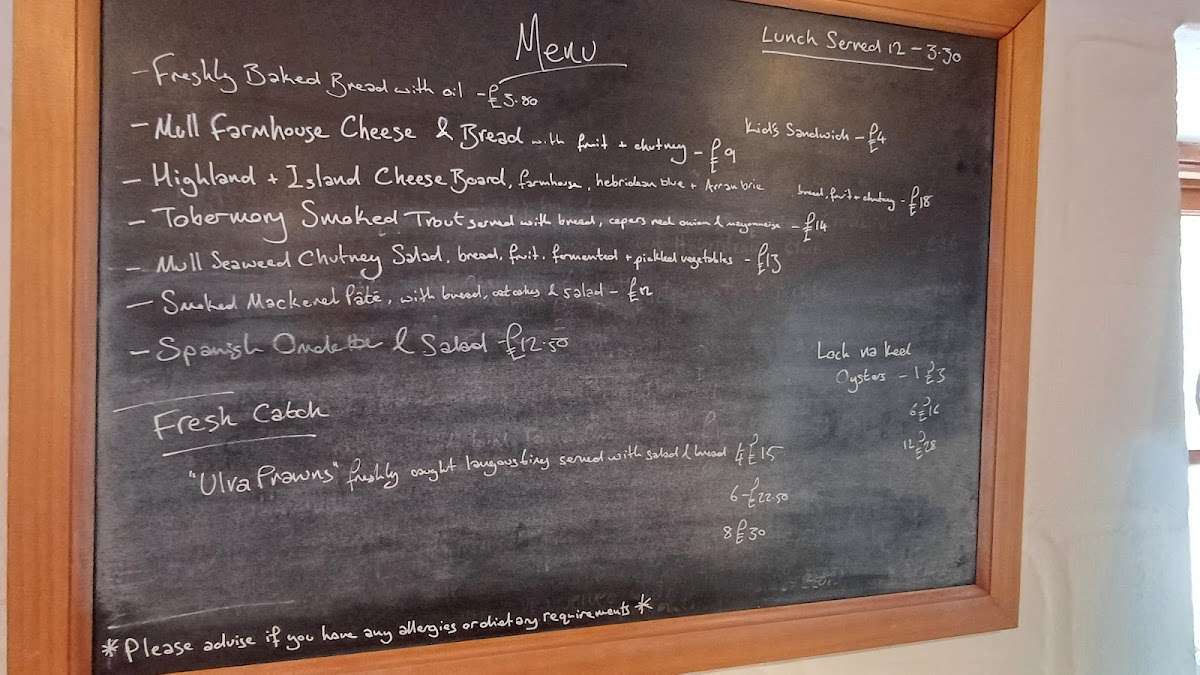 Menu
Lunch Served 12 - 3.30
- Freshly Baked Bread with oil - £3.80
- Mull Farmhouse Cheese & Bread with fruit + chutney - £9
Kid's Sandwich - £4
- Highland + Island Cheese Board, farmhouse, hebridean blue + Arran brie bread, fruit + chutney - £18
- Tobermory Smoked Trout served with bread, capers red onion & mayonnaise - £14
- Mull Seaweed Chutney Salad, bread, fruit, fermented + pickled vegetables - £13
- Smoked Mackerel Pâté, with bread, oatcakes & salad - £12
- Spanish Omelette & Salad - £12.50
Loch na Keel
Oysters - 1 £3
6 £16
12 £28
Fresh Catch
"Ulva Prawns" freshly caught langoustine served with salad & bread 4 £15
6 - £22.50
8 £30
*Please advise if you have any allergies or dietary requirements*